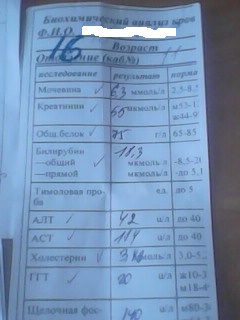 Биохимический анализ кров
Ф.И.О.
16 Возраст 11
Отделение (каб№)
исследование результат норма
Мочевина 6,3 ммоль/л 2,5-8,3
Креатинин 65 мкмоль/л м53-1
ж44-9
Общ.белок 75 г/л 65-85
Билирубин 18,3
—общий мкмоль/л -8,5-20
—прямой мкмоль/л -до 5,1
Тимоловая про- ед. до 5
ба
АЛТ 42 u/л до 40
АСТ 114 u/л до 40
Холестерин моль/л 3,0-5,
ГГТ 20 u/л ж10-3
м18-4
Щелочная фос- 140 u/л м80-3